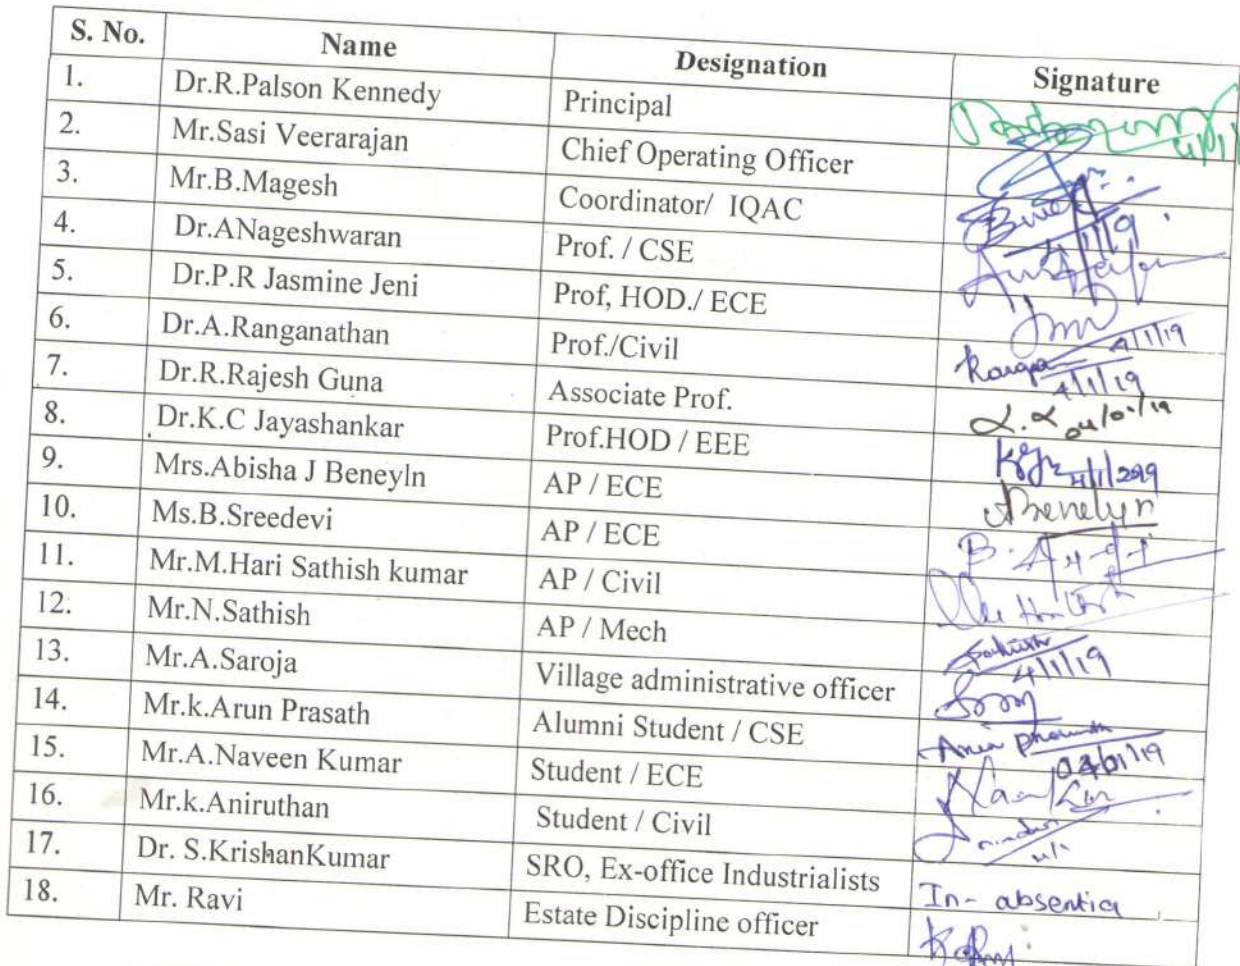 S. No. Name Designation Signature
1. Dr.R.Palson Kennedy Principal
2. Mr.Sasi Veerarajan Chief Operating Officer
3. Mr.B.Magesh Coordinator/ IQAC
4. Dr.ANageshwaran Prof. / CSE
5. Dr.P.R Jasmine Jeni Prof, HOD./ ECE
6. Dr.A.Ranganathan Prof./Civil 4/1/19
7. Dr.R.Rajesh Guna Associate Prof. 4/1/19
8. Dr.K.C Jayashankar Prof.HOD / EEE 04/01/19
9. Mrs.Abisha J Beneyln AP / ECE 4/1/2019
10. Ms.B.Sreedevi AP / ECE
11. Mr.M.Hari Sathish kumar AP / Civil
12. Mr.N.Sathish AP / Mech
13. Mr.A.Saroja Village administrative officer 4/1/19
14. Mr.k.Arun Prasath Alumni Student / CSE
15. Mr.A.Naveen Kumar Student / ECE
16. Mr.k.Aniruthan Student / Civil
17. Dr. S.KrishanKumar SRO, Ex-office Industrialists In- absentia
18. Mr. Ravi Estate Discipline officer